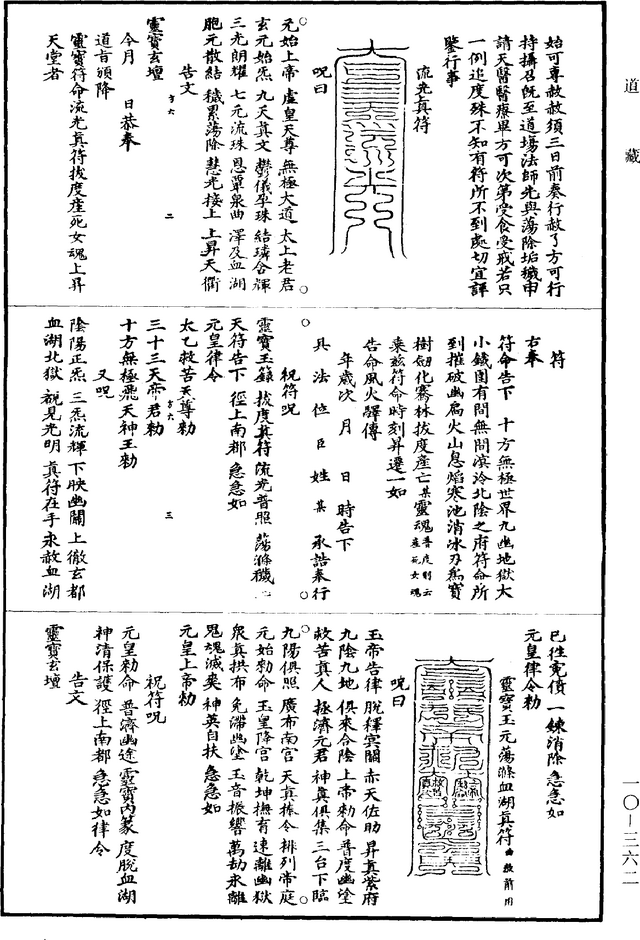 道藏
始可專赦赦須三日前奏行赦了方可行
持攝召既至道場法師先與蕩除垢穢申
請天醫醫療畢方可次第受食受戒若只
一例追度殊不知有符所不到處切宜詳
鑒行事
流光真符
呪曰
元始上帝 虛皇天尊 無極大道 太上老君
玄元始炁 九天真文 鬱儀孕珠 結璘合輝
三光朗耀 七元流珠 恩覃泉曲 澤及血湖
胞元散結 穢累蕩除 慧光接上 上昇天衢
告文
靈寶玄壇
今月 日恭奉
道旨頒降
靈寶符命流光真符拔度產死女魂上昇
天堂者
符
右奉
符命告下 十方無極世界九幽地獄大
小鐵圍有間無間溟泠北陰之府符命所
到摧破幽扃火山息焰寒池消冰刃為寶
樹劒化騫林拔度產亡某靈魂普度則云產死女魂
乘茲符命時刻昇遷一如
告命風火驛傳
年歲次 月 日 時告下
具法位臣姓 某 承誥奉行
祝符呪
靈寶玉籙 拔度真符 流光普照 蕩滌穢
天符告下 徑上南都 急急如
元皇律令
太乙救苦天尊勑
三十三天帝君勑
十方無極飛天神王勑
又呪
陰陽正炁 三炁流輝 下映幽關 上徹玄都
血湖北獄 覩見光明 真符在手 永赦血湖
已往冤債 一鍊消除 急急如
元皇律令勑
靈寶玉元蕩滌血湖真符
呪曰
玉帝告律 脫釋冥關 赤天佐助 昇真紫府
九陰九地 俱來合陰 上帝勑命 普度幽塗
救苦真人 拯濟元君 神真俱集 三台下臨
九陽俱照 廣布南宮 天真捧令 排列帝庭
元始勑命 玉皇降宮 乾坤撫育 速離幽獄
衆真拱布 免滯幽塗 玉音振響 萬劫永離
鬼魂滅矣 神英自扶 急急如
元皇上帝勑
祝符呪
元皇勑命 普濟幽途 靈寶內篆 度脫血湖
神清保護 徑上南都 急急如律令
告文
靈寶玄壇
一〇—三六二